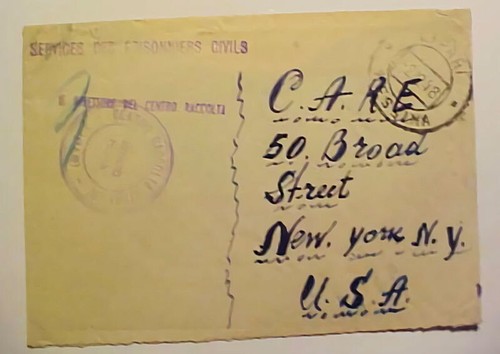 SERVICES DES PRISONNIERS CIVILS
IL DIRETTORE DEL CENTRO RACCOLTA
LIPARI
MESSINA
C.A.R.E
50. Broad
Street
New. york N.y.
U.S.A.